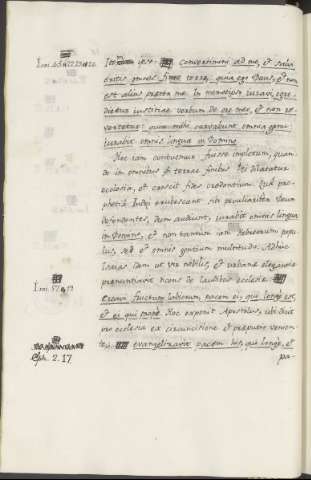 convertimini ad me, et salvi
eritis omnes fines terrae, quia ego Deus, et non
est alius praeter me. In memetipso iuravi, egre-
dietur iustitiae verbum de ore meo, et non re-
vertetur: quia mihi curvabunt omnia genu
iurabit omnis lingua in Domino.
Hoc iam contuemur fuisse impletum, quan-
do in omnibus terrae finibus Dei dilatatur
ecclesia, et crescit fides credentium. Quid pro-
phetia Iudaei erubescant sibi peculiariter Deum
defendentes, dum audiunt, iurabit omnis lingua
in Domino, et non tantum Hebraeorum popu-
lus, sed et omnis gentium multitudo. Adhuc
Isaias idem ut vir nobilis, et urbana elegantia
pronuntiavit haec de laudibus ecclesiae
Creavi fructum labiorum, pacem ei, qui longe est,
et ei qui prope. Hoc exponit Apostolus, ubi dicit
pro ecclesia ex circumcisione et praeputio venien-
te, evangelizavit pacem his, qui longe, et
pa-
Isai. 57.
Eph. 2. 17